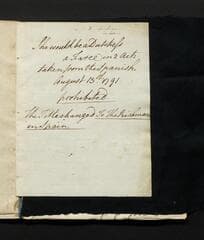 She would be a Dutchess
a Farce in 2 acts
taken from the Spanish
August 13th 1791
prohibited
The
changed to The Irishman
in Spain